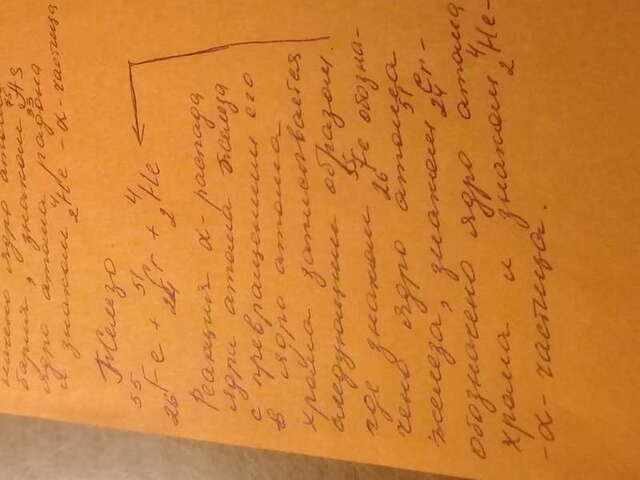 ядро атома
бария, знаком ³³As
ядро атома радона
и знаком ⁴₂He - α - частица
Железо
⁵⁵₂₆Fe + ⁵¹₂₄Cr + ⁴₂He
Реакция α - распада
ядра атома железа
с превращением его
в ядро атома
хрома записывается
следующим образом:
где знаком ⁵⁵₂₆Fe обозна-
чено ядро атома
железа, знаком ⁵¹₂₄Cr -
обозначено ядро атома
хрома и знаком ⁴₂He -
- α - частица.